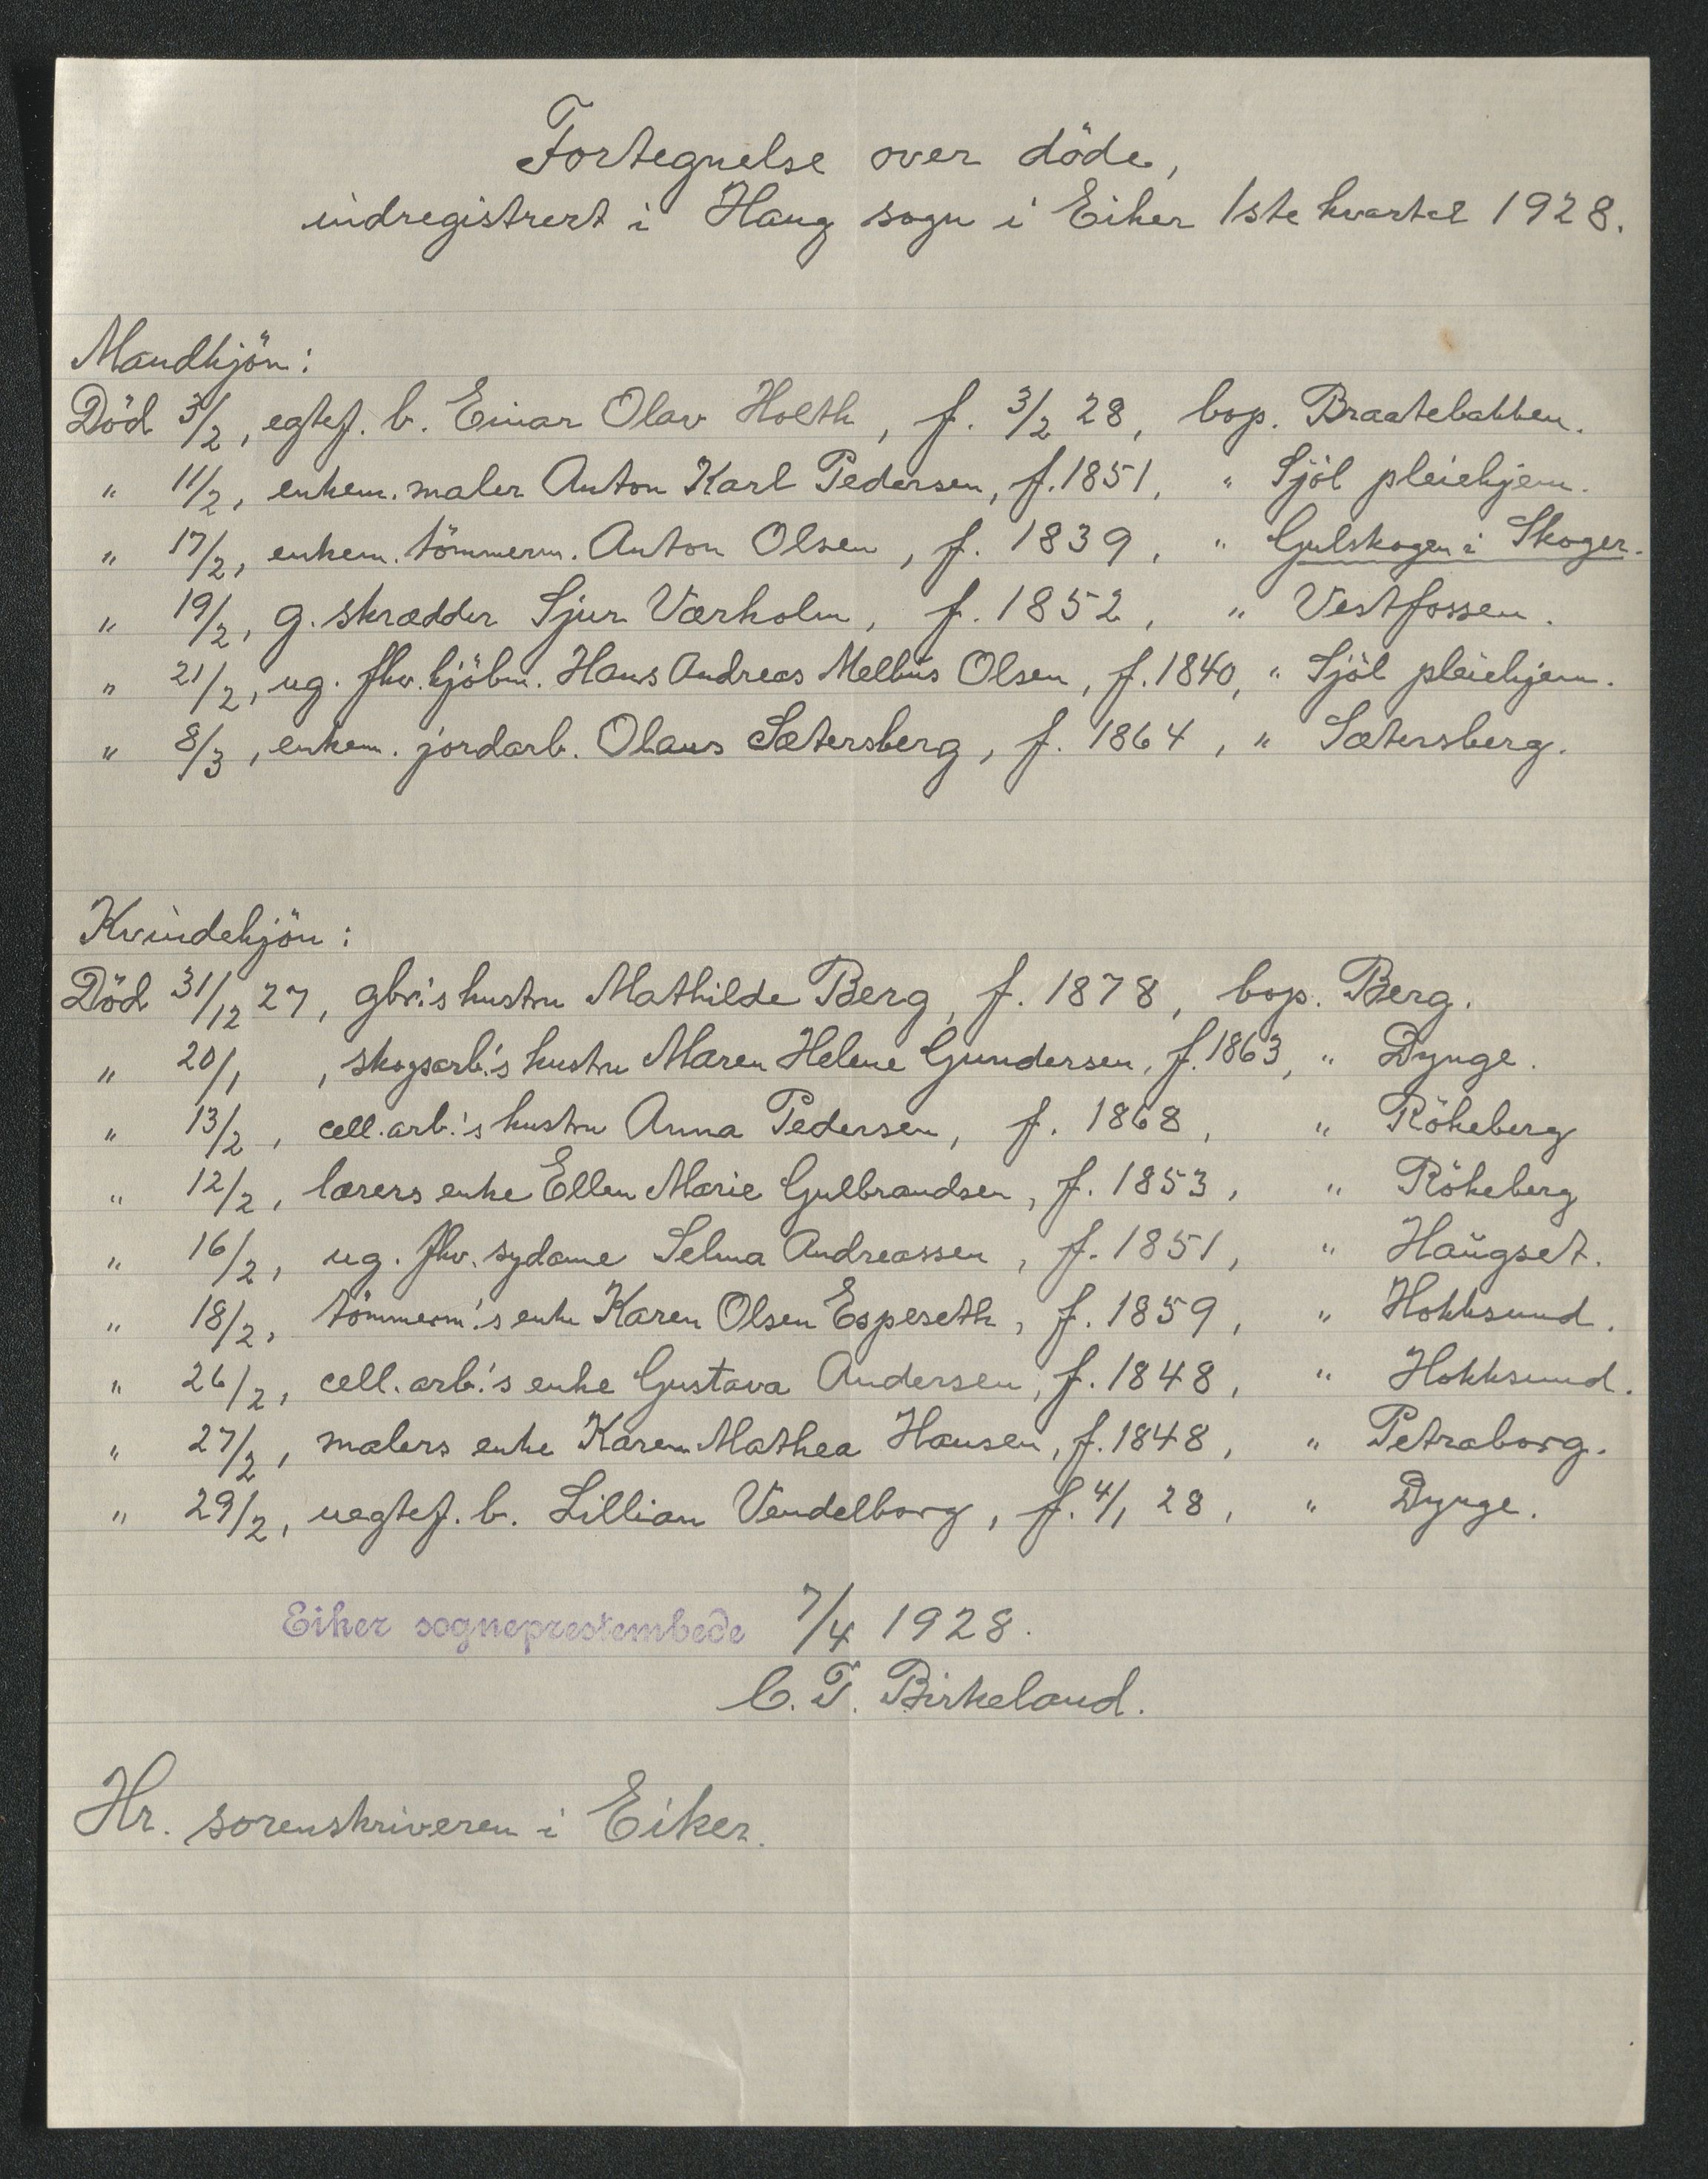 Fortegnelse over döde,
indregistrert i Haug sogn i Eiker 1ste kvartal 1928.
Mandkjön:
Död 3/2, egtef. b. Einar Olav Holth, f. 3/2 28, bop. Braatebakken.
" 11/2, enkem. maler Anton Karl Pedersen, f. 1851, " Sjöl pleiehjem.
" 17/2, enkem. tömmerm. Anton Olsen, f. 1839, " Gulskogen i Skoger.
" 19/2, g. skrædder Sjur Værholm, f. 1852, " Vestfossen.
" 21/2, ug. fhv. kjöbm. Hans Andreas Melbüs Olsen, f. 1840, " Sjöl pleiehjem.
" 8/3, enkem. jordarb. Olaus Sætersberg, f. 1864, " Sætersberg.
Kvindekjön:
Död 31/12 27, gbr.'s hustru Mathilde Berg, f. 1878, bop. Berg.
" 20/1, skogsarb.'s hustru Maren Helene Gundersen, f. 1863, " Dynge.
" 13/2, cell.arb.'s hustru Anna Pedersen, f. 1868, " Rökeberg
" 12/2, lærers enke Ellen Marie Gulbrandsen, f. 1853, " Rökeberg
" 16/2, ug. fhv. sydame Selma Andreassen, f. 1851, " Haügset.
" 18/2, tömmerm.'s enke Karen Olsen Espeseth, f. 1859, " Hokksund.
" 26/2, cell.arb.'s enke Gustava Andersen, f. 1848, " Hokksund.
" 27/2, malers enke Karen Mathea Hansen, f. 1848, " Petraborg.
" 29/2, uegtef. b. Lillian Vendelborg, f. 4/1 28, " Dynge.
Eiker sogneprestembede 7/4 1928.
C. T. Birkeland.
Hr. sorenskriveren i Eiker.